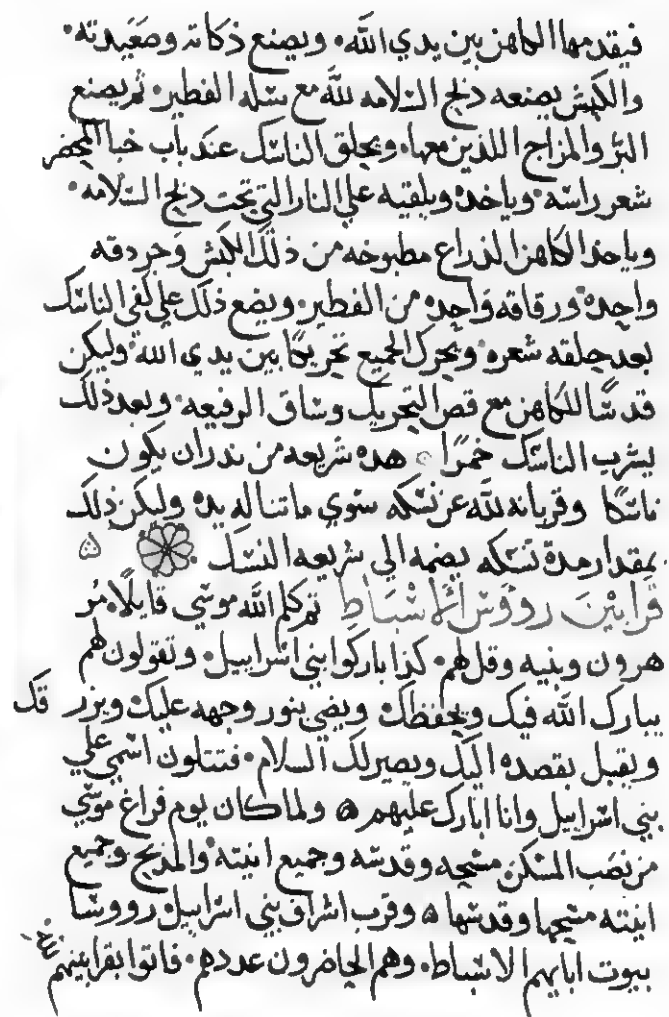 فيقدمها الكاهن بين يدي الله. ويصنع ذكاته وصعيدته.
والكبش يصنعه ذبح السلامه لله مع سله الفطير. ثم يصنع
البر والمزاج اللذين معها. ويحلق الناسك عند باب خبا المحضر
شعر راسه. وياخده ويلقيه علي النار التي تحت ذبح السلامه.
وياخذ الكاهن الذراع مطبوخه من ذلك الكبش وجردقه
واحده ورقاقه واحده من الفطير. ويضع ذلك علي كفي الناسك
بعد حلقه شعره ويحرك الجميع تحريكا بين يدي الله وليكن
قدسا للكاهن مع قص التحريك وساق الرفيعه. وبعد ذلك
يشرب الناسك خمرا ۞ هده شريعه من ندر ان يكون
ناسكا وقربانه لله عن نسكه سوي ما تناله يده وليكن ذلك
بمقدار مدة نسكه يضمه الي شريعه النسك
قرابين رووس الاسباط ثم كلم الله موسي قايلا. مر
هرون وبنيه وقل لهم. كذا باركوا بني اسراييل. وتقولون لهم
يبارك الله فيك ويحفظك ويضي بنور وجهه عليك ويرزقك
ويقبل بقصده اليك ويصير لك السلام. فتتلون اسمي علي
بني اسراييل وانا ابارك عليهم ۞ ولما كان يوم فراغ موسي
من نصب المسكن مسحه وقدسه وجميع انيته والمذبح وجميع
انيته مسحها وقدسها ۞ وقرب اشراف بني اسراييل رووسا
بيوت ابايهم الاسباط. وهم الحاضرون عددهم. فاتوا بقرابينهم لله